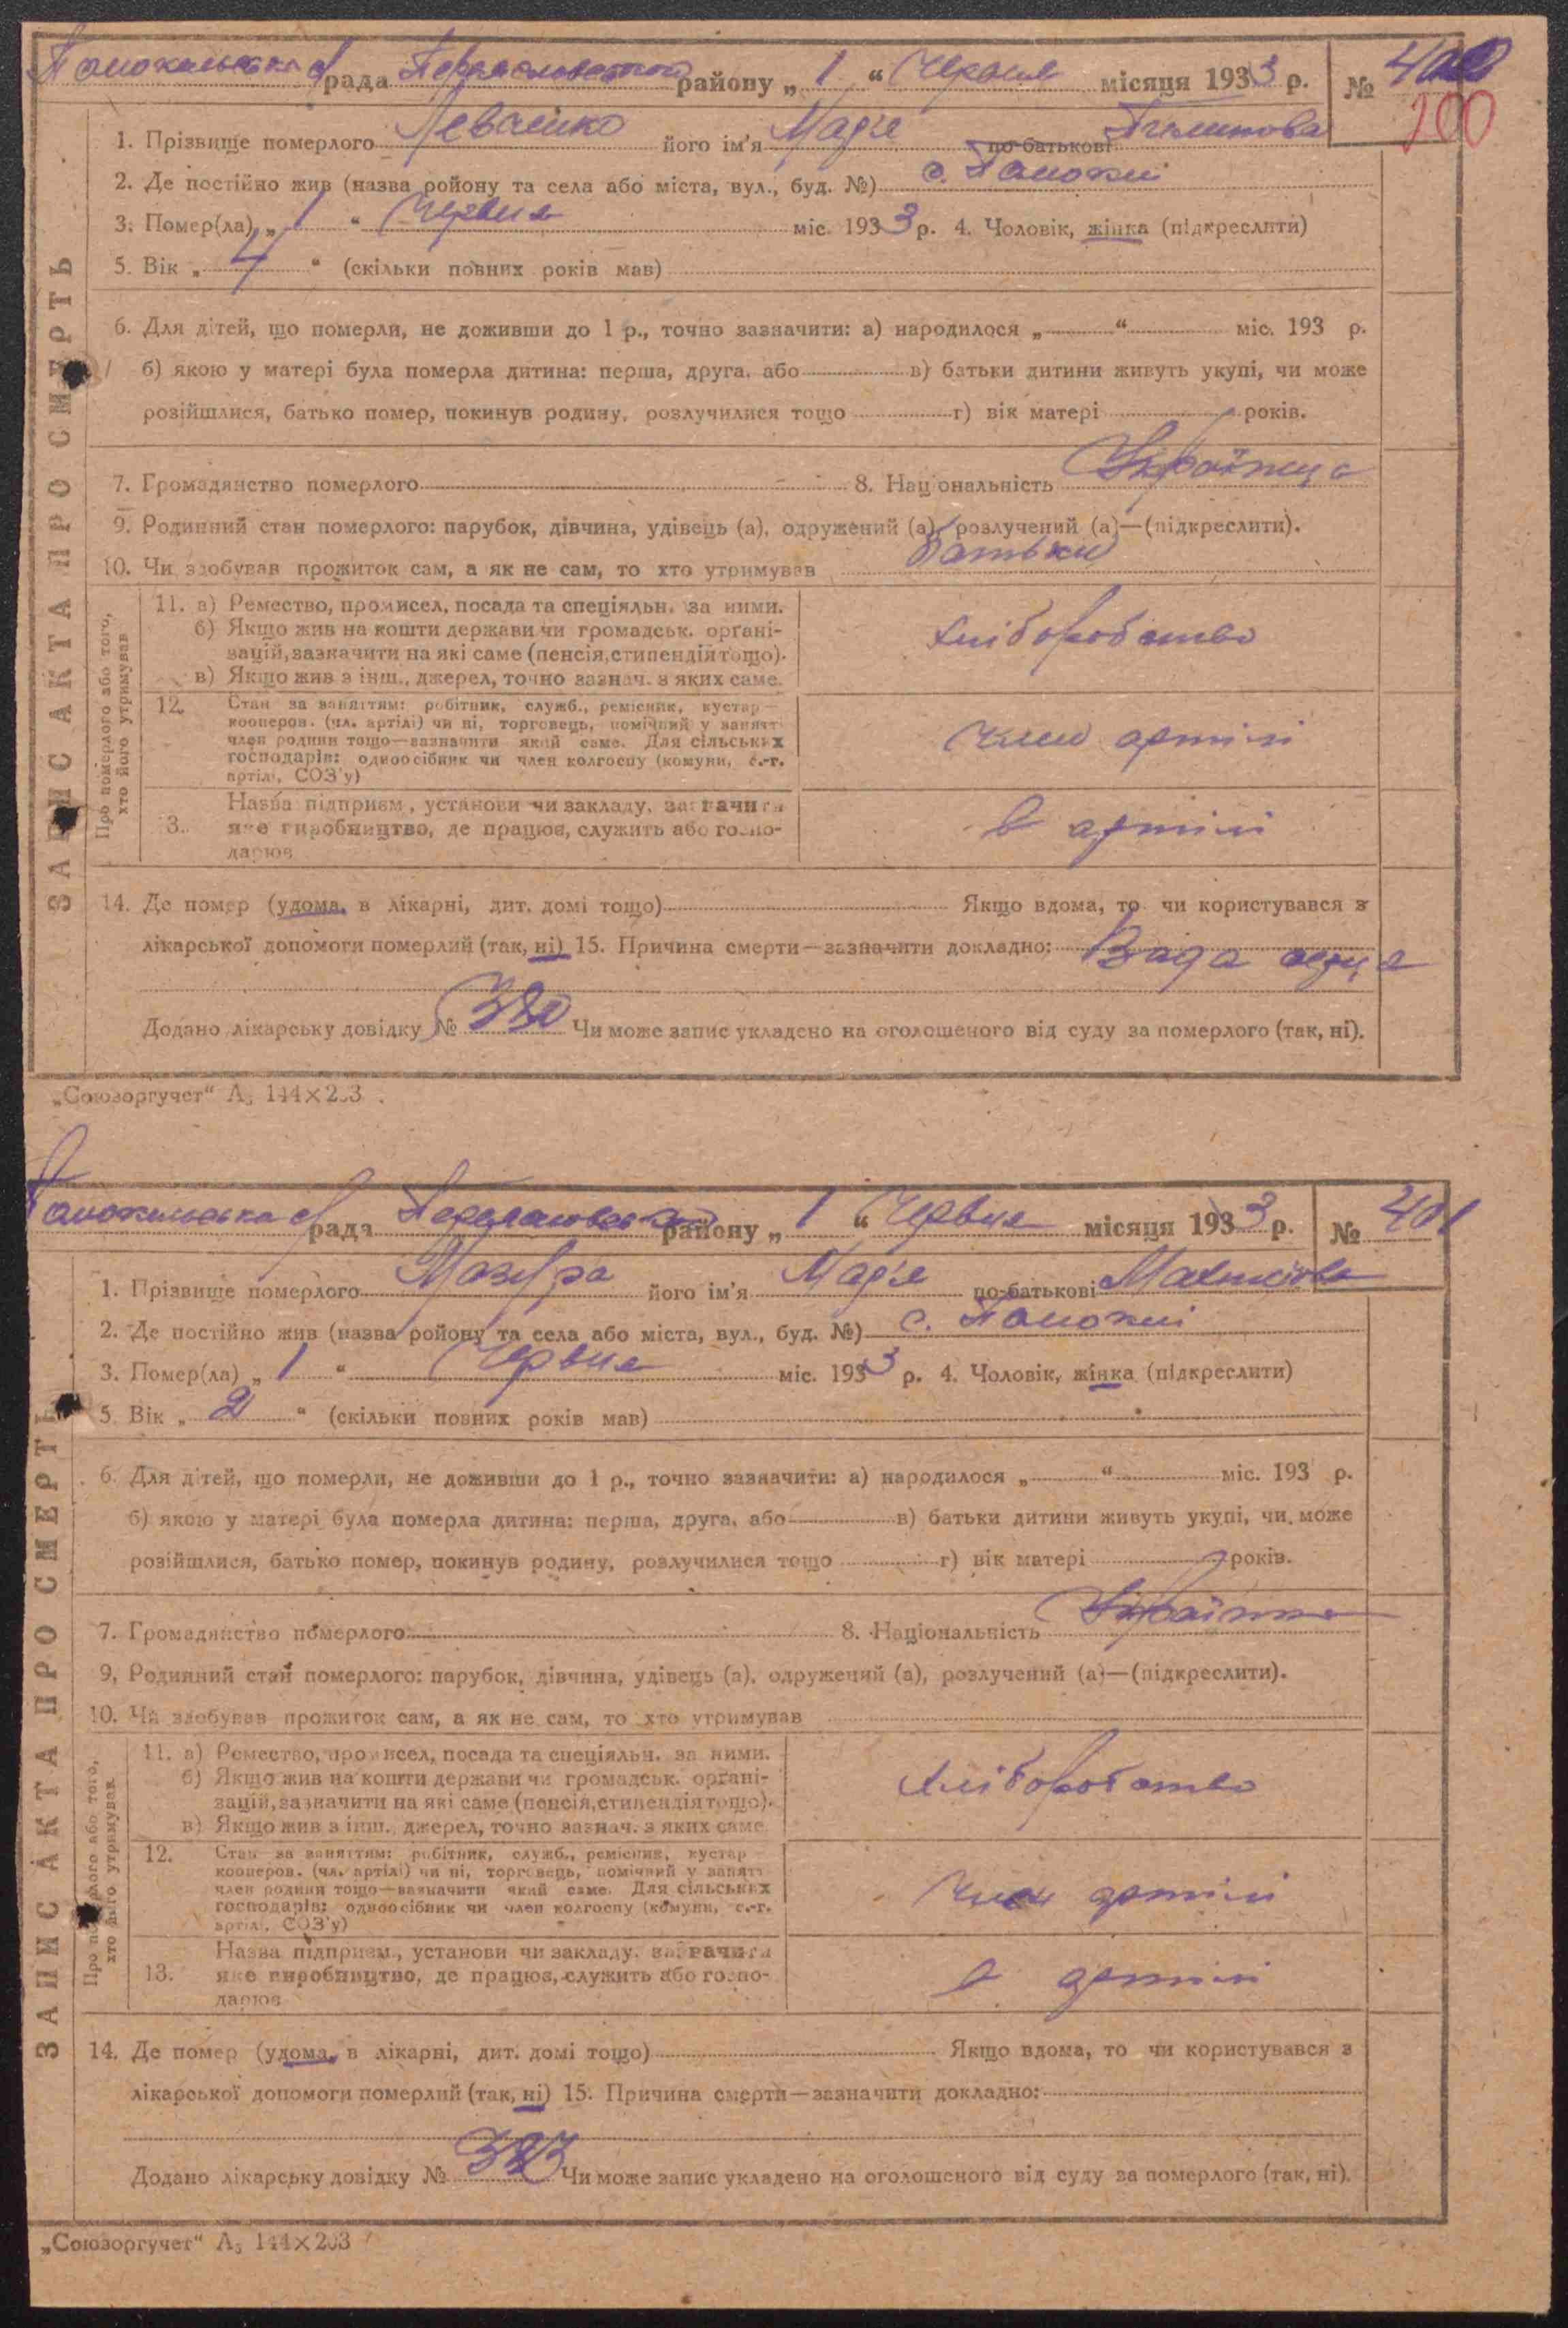 рада району „ 1 “ Червня місяця 1933 р. № 400
100
1. Прізвище померлого Левченко його ім'я Марія по-батькові
2. Де постійно жив (назва ройону та села або міста, вул., буд. №) с.
3. Помер(ла) „ 1 “ Червня міс. 1933 р. 4. Чоловік, жінка (підкреслити)
5. Вік „ 4 “ (скільки повних років мав)
6. Для дітей, що померли, не доживши до 1 р., точно зазначити: а) народилося „ “ міс. 193 р.
б) якою у матері була померла дитина: перша, друга, або в) батьки дитини живуть укупі, чи може
розійшлися, батько помер, покинув родину, розлучилися тощо г) вік матері років.
7. Громадянство померлого 8. Національність Українца
9. Родинний стан померлого: парубок, дівчина, удівець (а), одружений (а), розлучений (а)—(підкреслити).
10. Чи здобував прожиток сам, а як не сам, то хто утримував батьки
ЗАПИС АКТА ПРО СМЕРТЬ
Про померлого або того,
хто його утримував
11. а) Ремество, промисел, посада та спеціяльн. за ними.
б) Якщо жив на кошти держави чи громадськ. органі-
зацій, зазначити на які саме (пенсія, стипендія тощо).
в) Якщо жив з інш., джерел, точно зазнач. з яких саме.
хліборобство
12. Стан за заняттям: робітник, служб., ремісник, кустар—
кооперов. (чл. артілі) чи ні, торговець, помічний у занятт
член родини тощо—зазначити який саме. Для сільських
господарів: одноосібник чи член колгоспу (комуни, с.-г.
артілі, СОЗ'у)
член артілі
Назва підприєм., установи чи закладу, зазначити
3. яке виробництво, де працює, служить або госпо-
дарює
в артілі
14. Де помер (удома, в лікарні, дит. домі тощо) Якщо вдома, то чи користувався з
лікарської допомоги померлий (так, ні) 15. Причина смерти—зазначити докладно: Вада серця
Додано лікарську довідку № 380 Чи може запис укладено на оголошеного від суду за померлого (так, ні).
„Союзоргучет“ А5 144×203
рада району „ 1 “ Червня місяця 1933 р. № 401
1. Прізвище померлого Мазура його ім'я Марія по-батькові
2. Де постійно жив (назва ройону та села або міста, вул., буд. №) с.
3. Помер(ла) „ 1 “ Червня міс. 1933 р. 4. Чоловік, жінка (підкреслити)
5. Вік „ 2 “ (скільки повних років мав)
6. Для дітей, що померли, не доживши до 1 р., точно зазначити: а) народилося „ “ міс. 193 р.
б) якою у матері була померла дитина: перша, друга, або в) батьки дитини живуть укупі, чи може
розійшлися, батько помер, покинув родину, розлучилися тощо г) вік матері років.
7. Громадянство померлого 8. Національність Українка
9. Родинний стан померлого: парубок, дівчина, удівець (а), одружений (а), розлучений (а)—(підкреслити).
10. Чи здобував прожиток сам, а як не сам, то хто утримував
ЗАПИС АКТА ПРО СМЕРТЬ
Про померлого або того,
хто його утримував
11. а) Ремество, промисел, посада та спеціяльн. за ними.
б) Якщо жив на кошти держави чи громадськ. органі-
зацій, зазначити на які саме (пенсія, стипендія тощо).
в) Якщо жив з інш., джерел, точно зазнач. з яких саме
хліборобство
12. Стан за заняттям: робітник, служб., ремісник, кустар
кооперов. (чл. артілі) чи ні, торговець, помічний у занятт
член родини тощо—зазначити який саме. Для сільських
господарів: одноосібник чи член колгоспу (комуни, с.-г.
артілі, СОЗ'у)
член артілі
Назва підприєм., установи чи закладу, зазначити
13. яке виробництво, де працює, служить або госпо-
дарює
в артілі
14. Де помер (удома, в лікарні, дит. домі тощо) Якщо вдома, то чи користувався з
лікарської допомоги померлий (так, ні) 15. Причина смерти—зазначити докладно:
Додано лікарську довідку № Чи може запис укладено на оголошеного від суду за померлого (так, ні).
„Союзоргучет“ А5 144×203